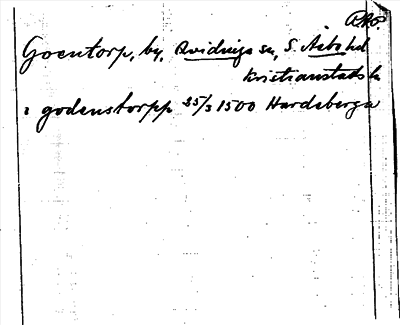 Goentorp, by, Kvidinge sn, S. Åsbo hd
Kristianstads l.
i godenstorpp 25/3 1500 Hardeberga